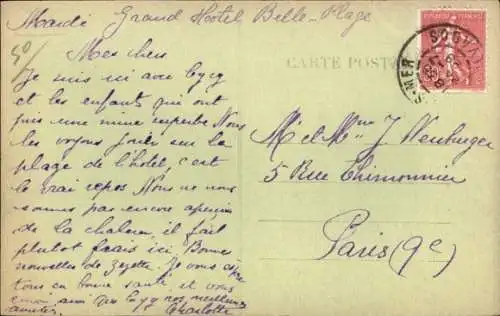 Mardi Grand Hotel Belle-Plage
50/
Mes chers
Je suis ici avec
et les enfants qui ont
pris une mine superbe Nous
les voyons jouer sur la
plage de l'hotel, c'est
le vrai repos Nous ne nous
sommes pas encore aperçus
de la chaleur, il fait
plutot frais ici. Bonnes
nouvelles de Zezette. Je vous
tous en bonne santé, et vous
envoi, ainsi que nos meilleures
amitiés, Charlotte
CARTE POSTALE
-MER
M et Mme J Neuburger
5 Rue Thimonnier
Paris (9e)